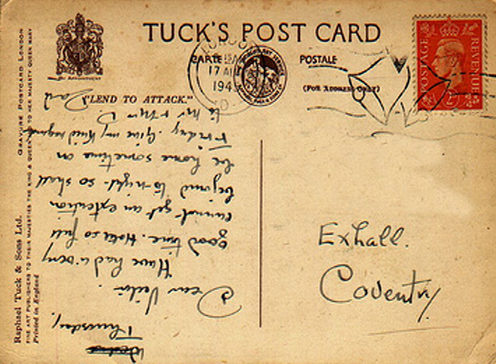 TUCK'S POST CARD
CARTE POSTALE
(FOR ADDRESS ONLY)
LONDON
17 AU
194
POSTAGE REVENUE
LEND TO ATTACK."
GRAVURE POSTCARD LONDON
Raphael Tuck & Sons Ltd.
FINE ART PUBLISHERS TO THEIR MAJESTIES THE KING & QUEEN & TO HER MAJESTY QUEEN MARY
Printed in England
Thursday,
Dear
Have had a very
good time. Hotel so full
cannot get an extention
beyond to-night so shall
be home sometime on
Friday. Give my kind regards
to Mr & Mrs D.
Exhall.
Coventry